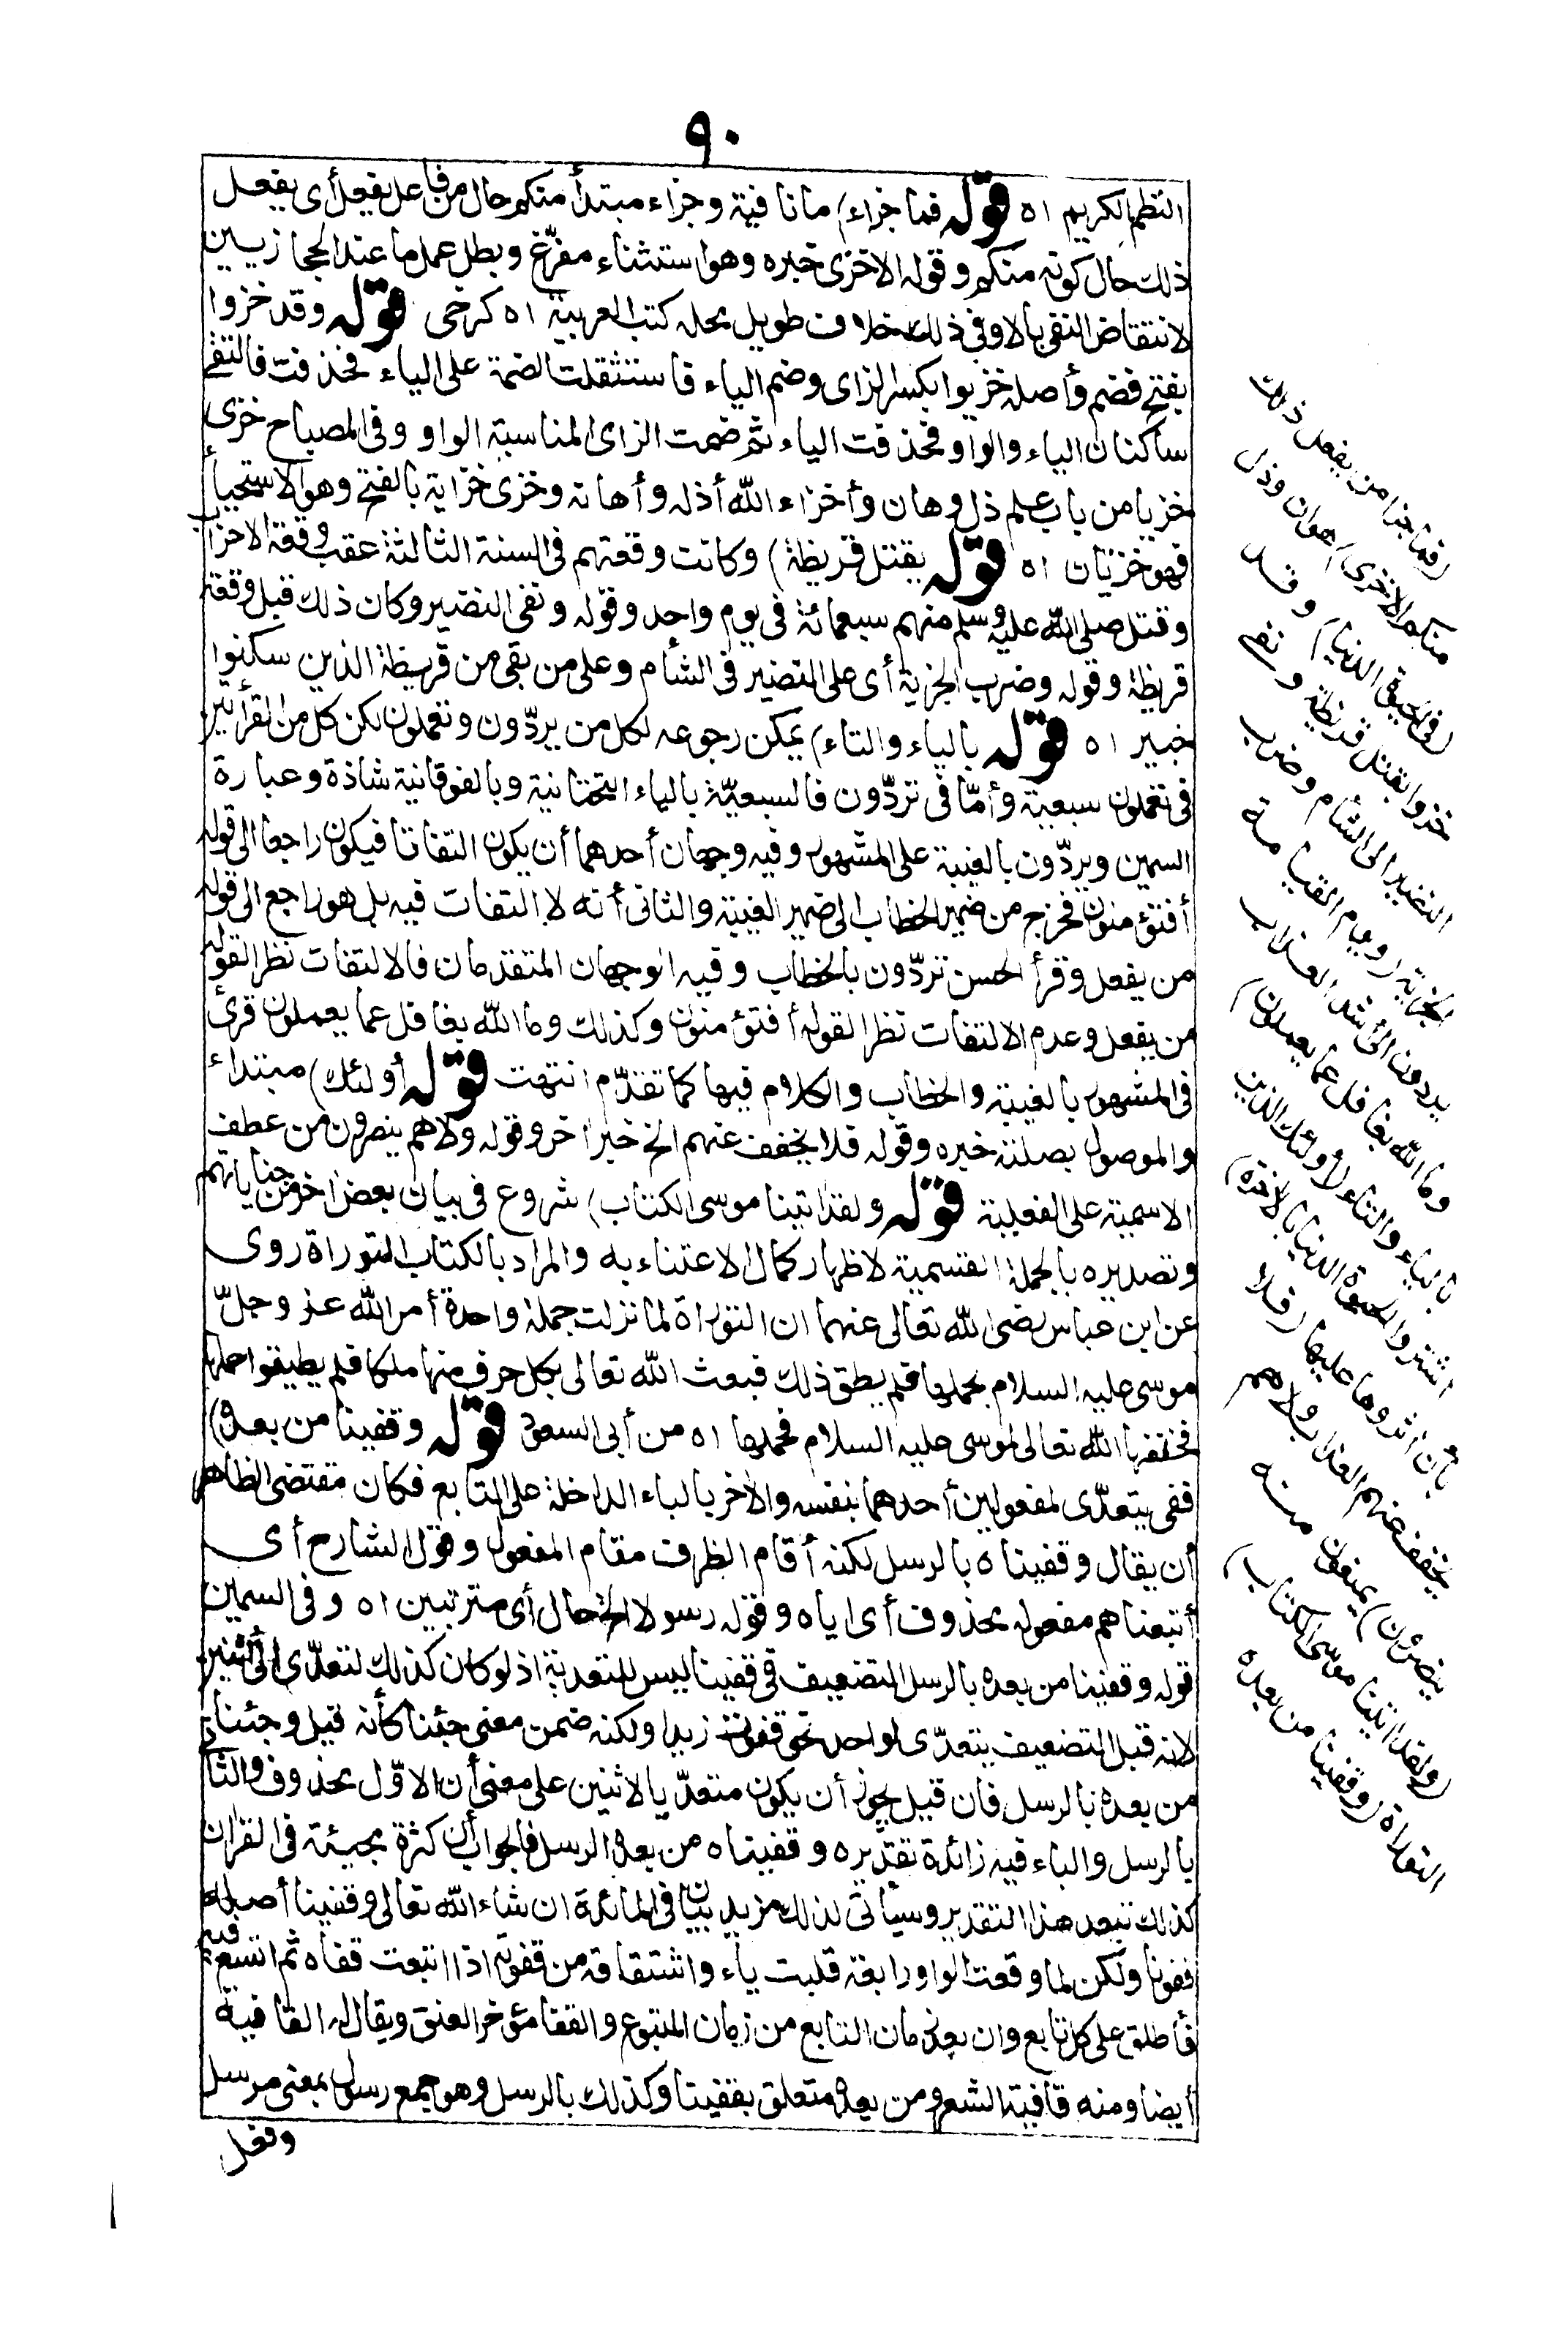 ٩٠
النظم الكريم اه قوله فما جزاء) ما نافية وجزاء مبتدأ منكم حال من فاعل يفعل أى يفعل
ذلك حال كونه منكم وقوله الاخزى خبره وهو استثناء مفرّغ وبطل عمل ما عند الحجازيين
لانتقاض النفى بالا وفى ذلك خلاف طويل محله كتب العربية اه كرخى قوله وقد خزوا
بفتح فضم وأصله خزيوا بكسر الزاى وضم الياء فاستثقلت الضمة على الياء فحذفت فالتقى
ساكنان الياء والواو فحذفت الياء ثم ضمت الزاى لمناسبة الواو وفى المصباح خزى
خزيا من باب علم ذل وهان وأخزاه الله أذله وأهانه وخزى خزاية بالفتح وهو الاستحياء
فهو خزيان اه قوله بقتل قريظة) وكانت وقعتهم فى السنة الثالثة عقب وقعة الاحزاب
وقتل صلى الله عليه وسلم منهم سبعمائة فى يوم واحد وقوله ونفى النضير وكان ذلك قبل وقعة
قريظة وقوله وضرب الجزية أى على النضير فى الشأم وعلى من بقى من قريظة الذين سكنوا
خيبر اه قوله بالياء والتاء) يمكن رجوعه لكل من يردّون وتعملون لكن كل من القراءتين
فى تعملون سبعية وأمّا فى تردّون فالسبعيّة بالياء التحتانية وبالفوقانية شاذة وعبارة
السمين ويردّون بالغيبة على المشهور وفيه وجهان أحدهما أن يكون التفاتا فيكون راجعا الى قوله
أفتؤمنون فخرج من ضمير الخطاب الى ضمير الغيبة والثانى أنه لا التفات فيه بل هو راجع الى قوله
من يفعل وقرأ الحسن تردّون بالخطاب وفيه الوجهان المتقدمان فالالتفات نظرا لقوله
من يفعل وعدم الالتفات نظرا لقوله أفتؤمنون وكذلك وما الله بغافل عما يعملون قرئ
فى المشهور بالغيبة والخطاب والكلام فيها كما تقدّم انتهت قوله أولئك) مبتداء
والموصول بصلته خبره وقوله فلا يخفف عنهم الخ خبر اخر وقوله ولاهم ينصرون من عطف
الاسمية على الفعلية قوله ولقد اتينا موسى الكتاب) شروع فى بيان بعض اخر من جناياتهم
وتصديره بالجملة القسمية لاظهار كمال الاعتناء به والمراد بالكتاب التوراة روى
عن ابن عباس رضى الله تعالى عنهما ان التوراة لما نزلت جملة واحدة أمر الله عز وجلّ
موسى عليه السلام بحملها فلم يطق ذلك فبعث الله تعالى بكل حرف منها ملكا فلم يطيقوا حملها
فخففها الله تعالى لموسى عليه السلام فحملها اه من أبى السعود قوله وقفينا من بعده)
قفى يتعدّى لمفعولين أحدهما بنفسه والآخر بالباء الداخلة على التابع فكان مقتضى الظاهر
أن يقال وقفيناه بالرسل لكنه أقام الظرف مقام المفعول وقول الشارح أى
أتبعناهم مفعوله محذوف أى اياه وقوله رسولا الخ حال أى مترتبين اه وفى السمين
قوله وقفينا من بعده بالرسل التضعيف فى قفينا ليس للتعدية اذ لو كان كذلك لتعدّى الى اثنين
لانه قبل التضعيف يتعدّى لواحد نحو قفوت زيدا ولكنه ضمن معنى جئنا كأنه قيل وجئنا
من بعده بالرسل فان قيل يجوز أن يكون متعدّيا لاثنين على معنى أن الاوّل محذوف والثانى
بالرسل والباء فيه زائدة تقديره وقفيناه من بعده الرسل فالجواب أن كثرة مجيئه فى القران
كذلك تبعد هذا التقدير وسيأتى لذلك مزيد بيان فى المائدة ان شاء الله تعالى وقفينا أصله
قفونا ولكن لما وقعت الواو رابعة قلبت ياء واشتقاقه من قفوته اذا اتبعت قفاه ثم اتسع فيه
فأطلق على كل تابع وان بعد زمان التابع من زمان المتبوع والقفا مؤخر العنق ويقال له القافية
أيضا ومنه قافية الشعر ومن بعده متعلق بقفينا وكذلك بالرسل وهو جمع رسول بمعنى مرسل
وفعل
(فما جزاء من يفعل ذلك
منكم الاخزى) هوان وذل
(فى الحيوة الدنيا) وقد
خزوا بقتل قريظة ونفى
النضير الى الشأم وضرب
الجزية (ويوم القيامة
يردون الى أشد العذاب
وما الله بغافل عما يعملون)
بالياء والتاء (أولئك الذين
اشتروا الحيوة الدنيا بالاخرة)
بأن اثروها عليها (فلا
يخفف عنهم العذاب ولاهم
ينصرون) يمنعون منه
(ولقد اتينا موسى الكتاب)
التوراة (وقفينا من بعده